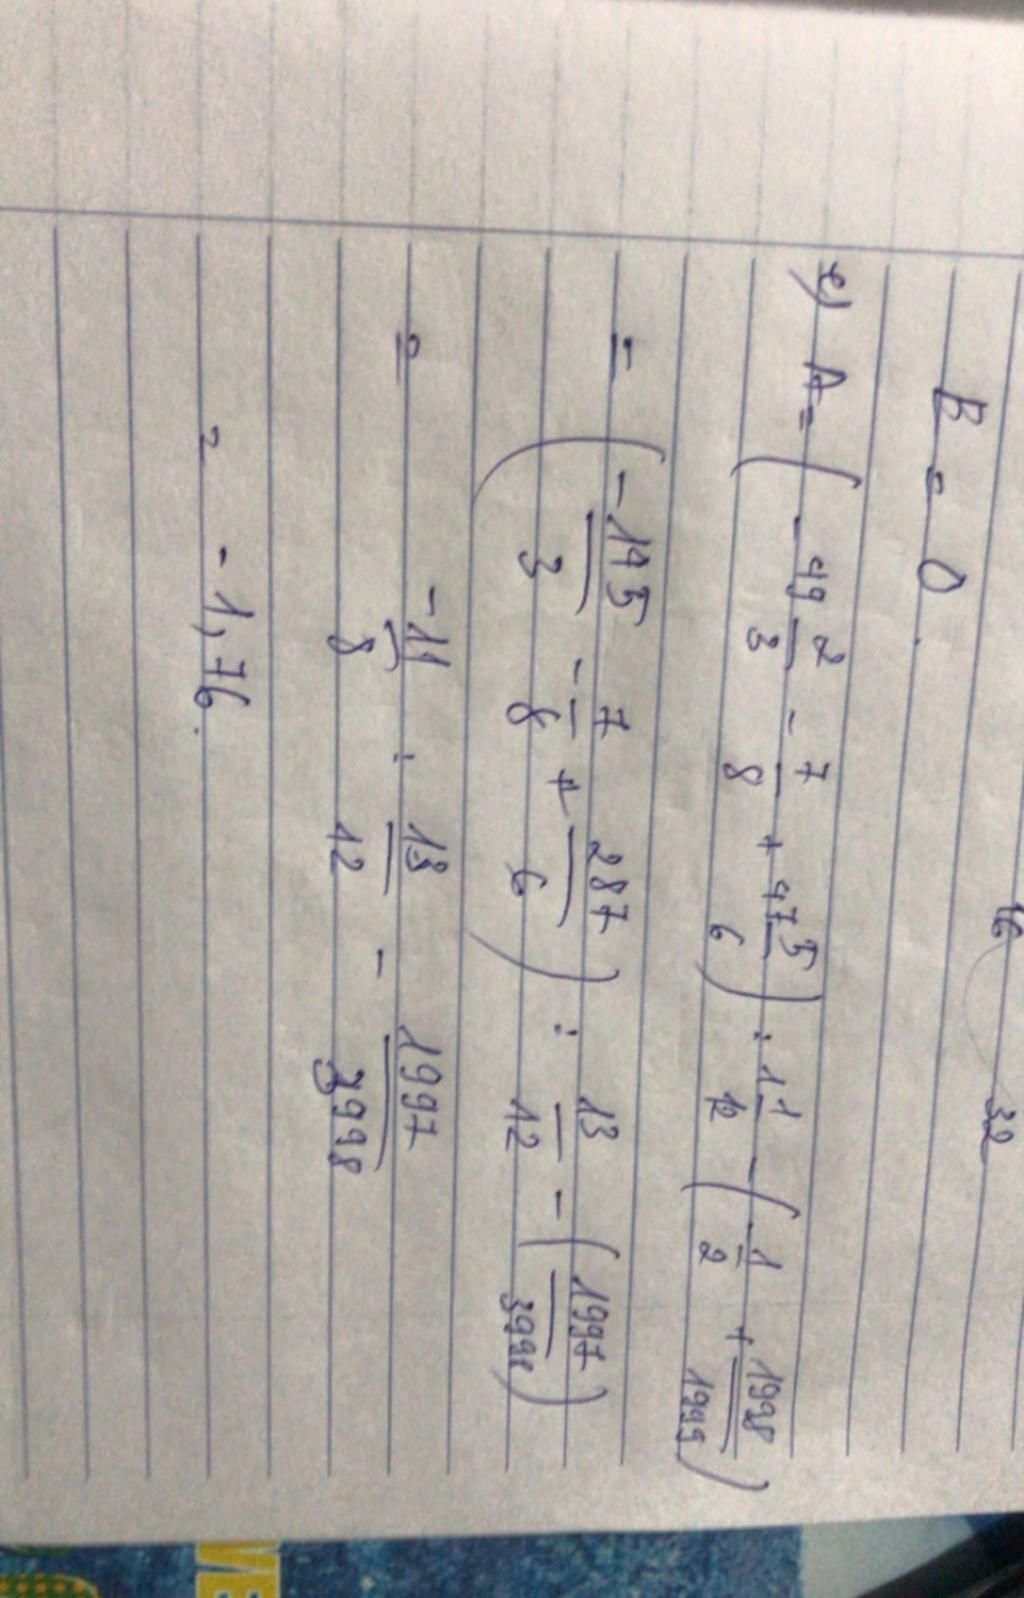 16 32
B = 0.
e) A = ( - 49 2/3 - 7/8 + 47 5/6 ) : 1 1/12 - ( - 1/2 + 1998/1999 )
= ( -145/3 - 7/8 + 287/6 ) : 13/12 - ( 1997/3998 )
= -11/8 : 13/12 - 1997/3998
= - 1,76.